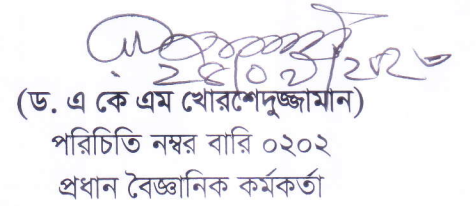 (ড. এ কে এম খোরশেদুজ্জামান)
পরিচিতি নম্বর বারি ০২০২
প্রধান বৈজ্ঞানিক কর্মকর্তা